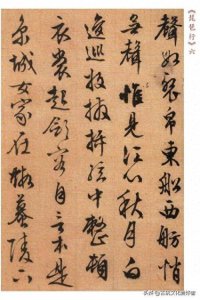 《琵琶行》六
聲如裂帛東船西舫悄
無聲惟見江心秋月白
撥插絃中整頓
衣裳起斂容自言本是
京城女家在蝦蟆陵下
头条